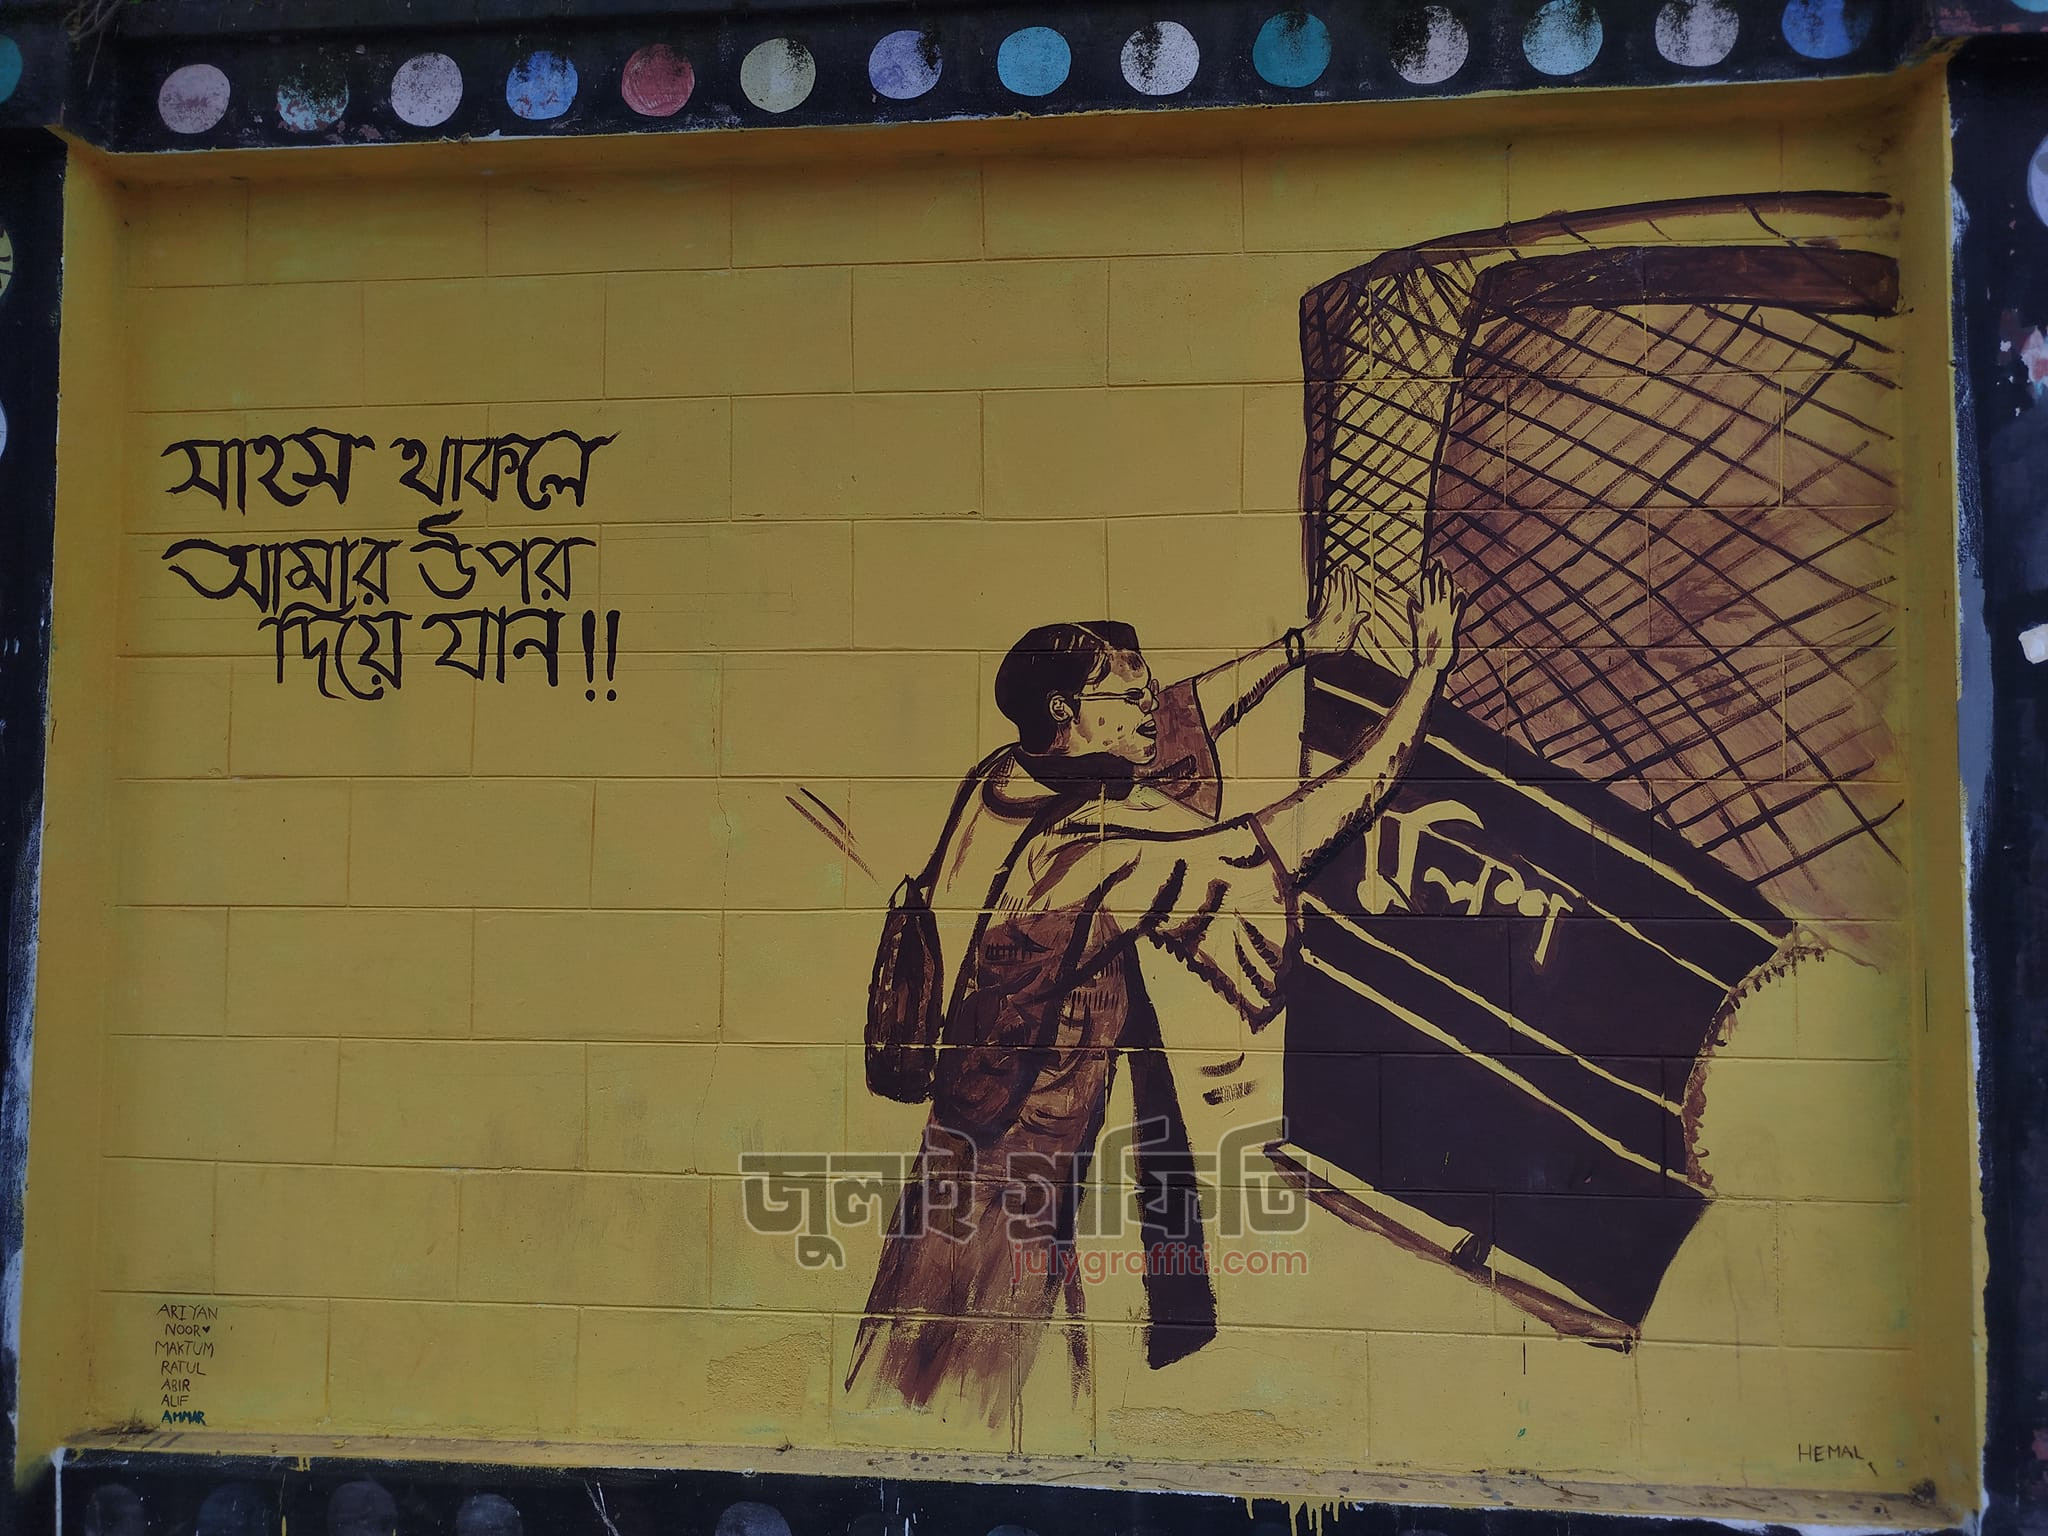 সাহস থাকলে
আমার উপর
দিয়ে যান!!
পুলিশ
জুলাই গ্রাফিতি
julygraffiti.com
ARIYAN
NOOR♥
MAKTUM
RATUL
ABIR
ALIF
AMMAR
HEMAL